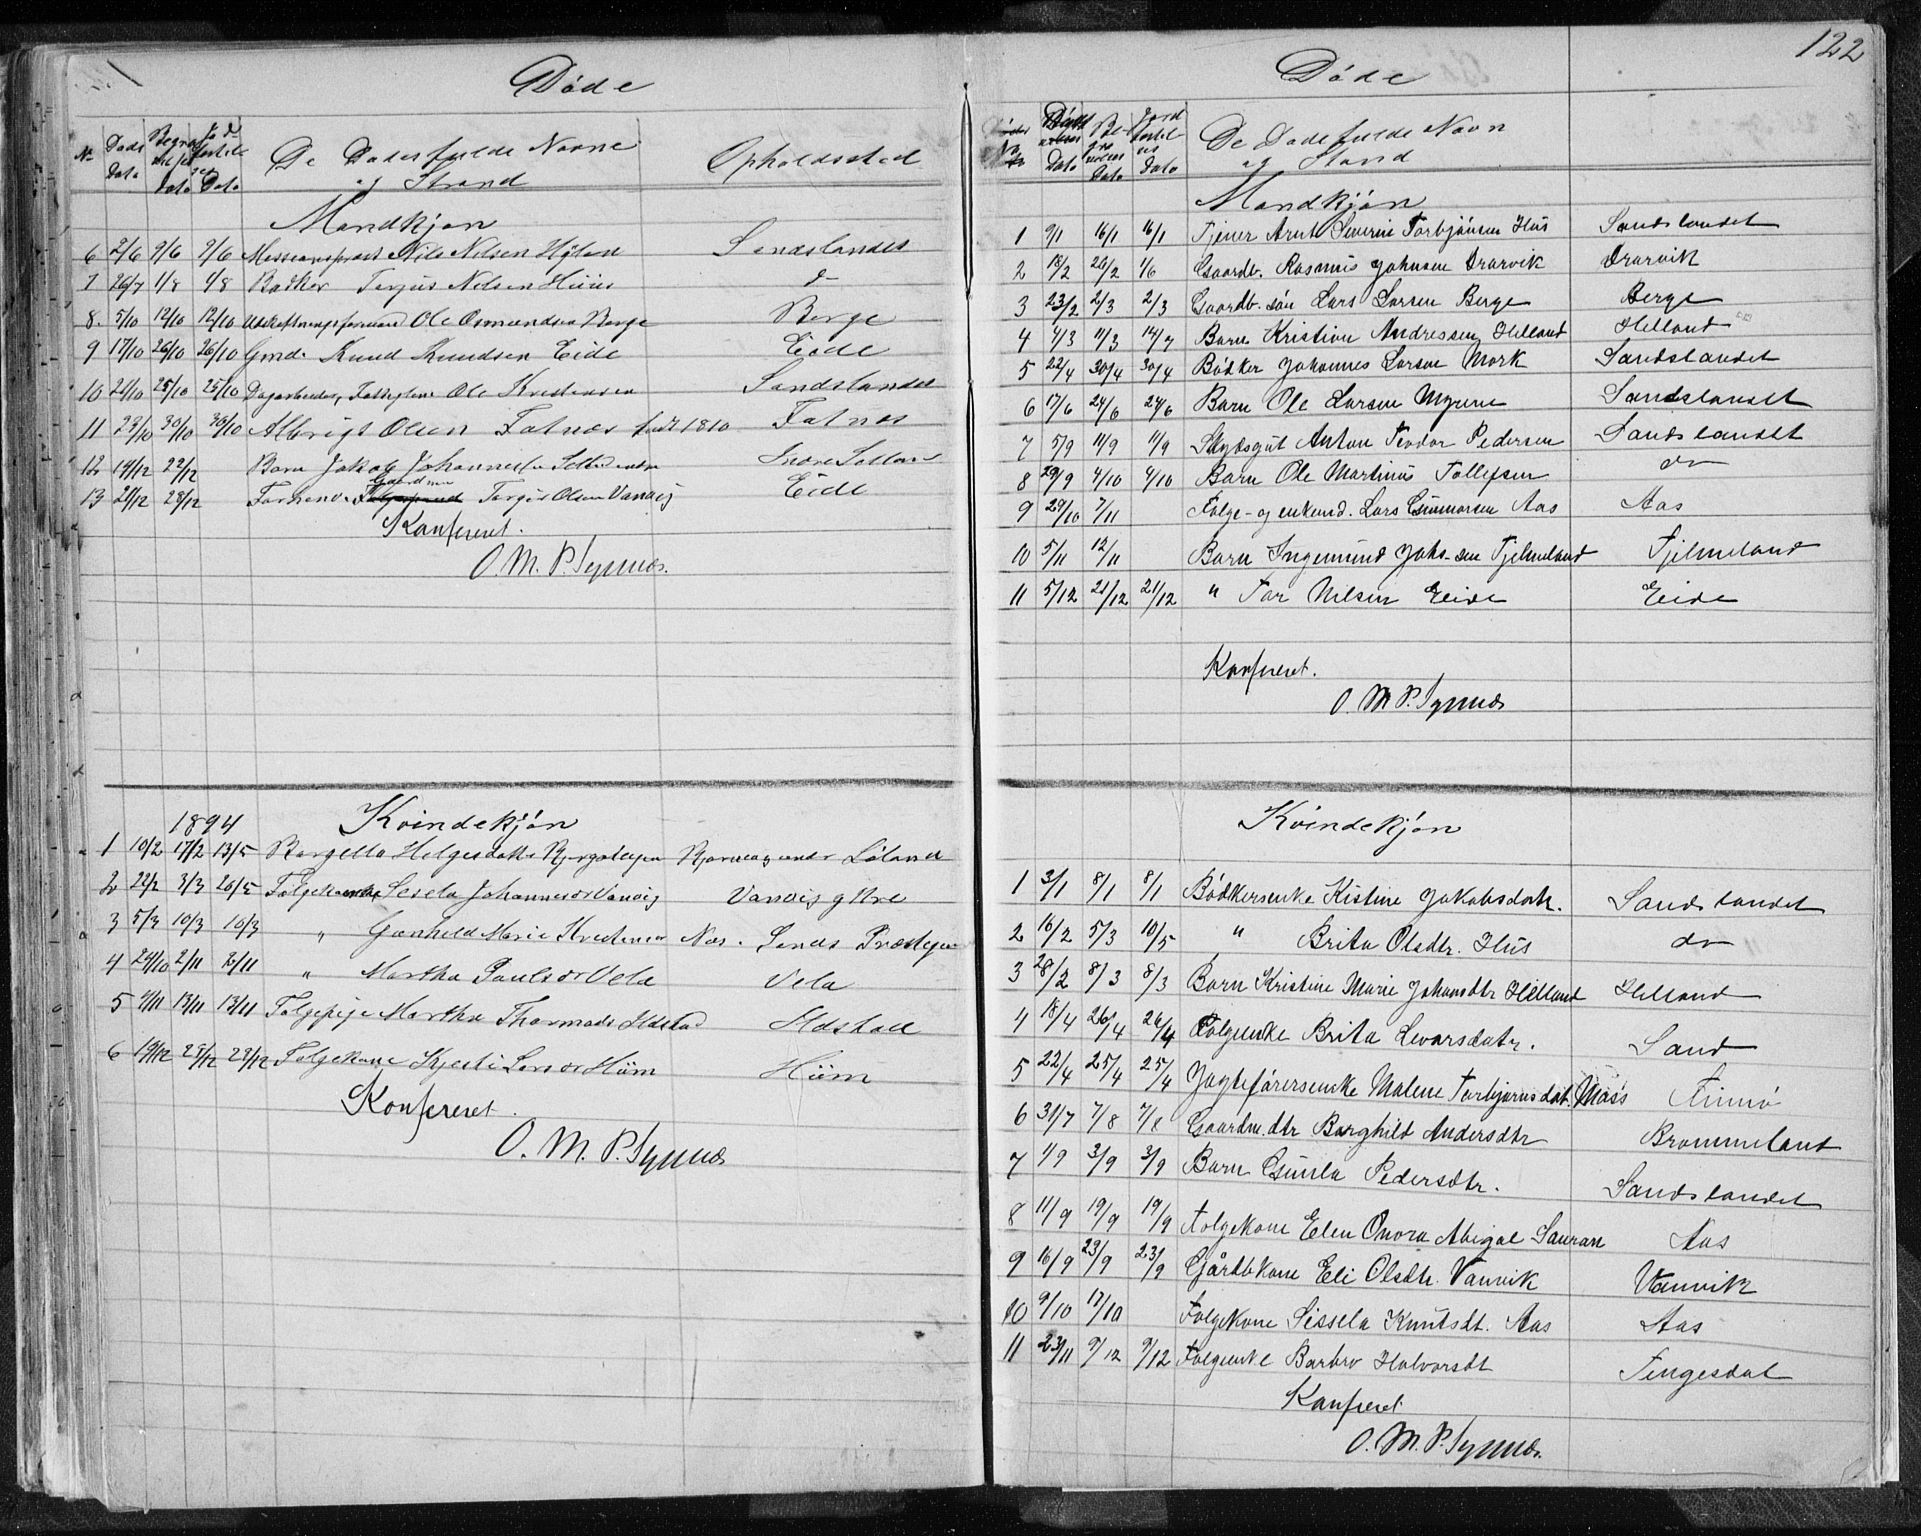 Døde
No Døds Dato Begravelses Dato Jordfæstelses Dato De Dødes fulde Navne og Stand Opholdssted
Mandkjøn
6 2/6 9/6 9/6 Nils Nilsen Hylen Sandslandet
7 26/7 1/8 1/8 Bødker Terjus Nilsen Hiim do
8. 5/10 12/10 12/10 Ole Osmundsen Berge Berge
9 17/10 26/10 26/10 Gmd. Knud Knudsen Eide Eide
10 21/10 25/10 25/10 Dagarbeider, Ole Kristensen Sandslandet
11 23/10 30/10 30/10 Albrigt Olsen Fatnes født 1810 Fatnes
12 14/12 22/12 Barn Jakob Johannessen Indre
13 21/12 28/12 Forhenv. Gaardmd Torgis Olsen Vanvig Eide
Konfereret.
O. M. P. Synnes.
1894 Kvindekjøn
1 10/2 17/2 13/5 Borgella Helgesdatter
2 22/2 3/3 20/5 Følgekone Sesela Johannesdr Vanvig Vanvig ytre
3 5/3 10/3 10/3 " Gønhild Marie Næs. Sands Præstegj
4 24/10 2/11 2/11 " Martha Paulsdr Vela Vela
5 4/11 13/11 13/11 Følgepige Martha Thormods Ilstad Ilstad
6 19/12 28/12 28/12 Følgekone Kjersti Larsdr Hiim Hiim
Konfereret.
O. M. P. Synnes
122
Døde
No Døds Dato Begravelses Dato Jordfæstelses Dato De Døde fulde Navn og Stand
Mandkjøn
1 9/1 16/1 16/1 Tjener Arnt Severin Torbjönsen Hus Sandslandet
2 18/2 26/2 1/6 Gaardb. Rasmus Johnsen Drarvik Drarvik
3 23/2 2/3 2/3 Gaardb. sön Lars Larsen Berge Berge
4 4/3 11/3 14/7 Barn Kristian Andressen Helland Helland
5 22/4 30/4 30/4 Bødker Johannes Larsen Mork Sandslandet
6 17/6 24/6 24/6 Barn Ole Larsen Myrene Sandslandet
7 5/9 11/9 11/9 Skydsgut Anton Teodor Pedersen Sandslandet
8 29/9 4/10 4/10 Barn Ole Martinus Tollefsen do
9 29/10 7/11 Følge- og enkemd. Lars Gunnarsen Aas Aas
10 5/11 12/11 Barn Ingemund Johs-sen Tjelmeland Tjelmeland
11 5/12 21/12 21/12 " Tor Nilsen Eide Eide
Konfereret.
O. M. P. Synnes
Kvindekjøn
1 3/1 8/1 8/1 Bødkersenke Kistine Jakobsdatr. Sandslandet
2 16/2 5/3 10/5 " Brita Olsdtr. Hus do
3 28/2 8/3 8/3 Barn Kristine Marie Johansdtr Helland Helland
4 18/4 26/4 26/4 Følgeenke Brita Levarsdatr. Sand
5 22/4 25/4 25/4 Jagtefórersenke Malene Torbjørnsdat. Moss Finnö
6 31/7 7/8 7/8 Gaardm. dtr Borghild Andersdtr Brommeland
7 1/9 3/9 3/9 Barn Gunla Pedersdtr. Sandslandet
8 11/9 19/9 19/9 Følgekone Elen Onora Abigal Sauran Aas
9 16/9 23/9 23/9 Gårdbkone Eli Olsdtr. Vanvik Vanvik
10 9/10 17/10 Følgekone Sissela Knutsdt. Aas Aas
11 23/11 9/12 9/12 Følgeenke Barbro Halvorsdt Tengesdal
Konfereret
O. M. P. Synnes.